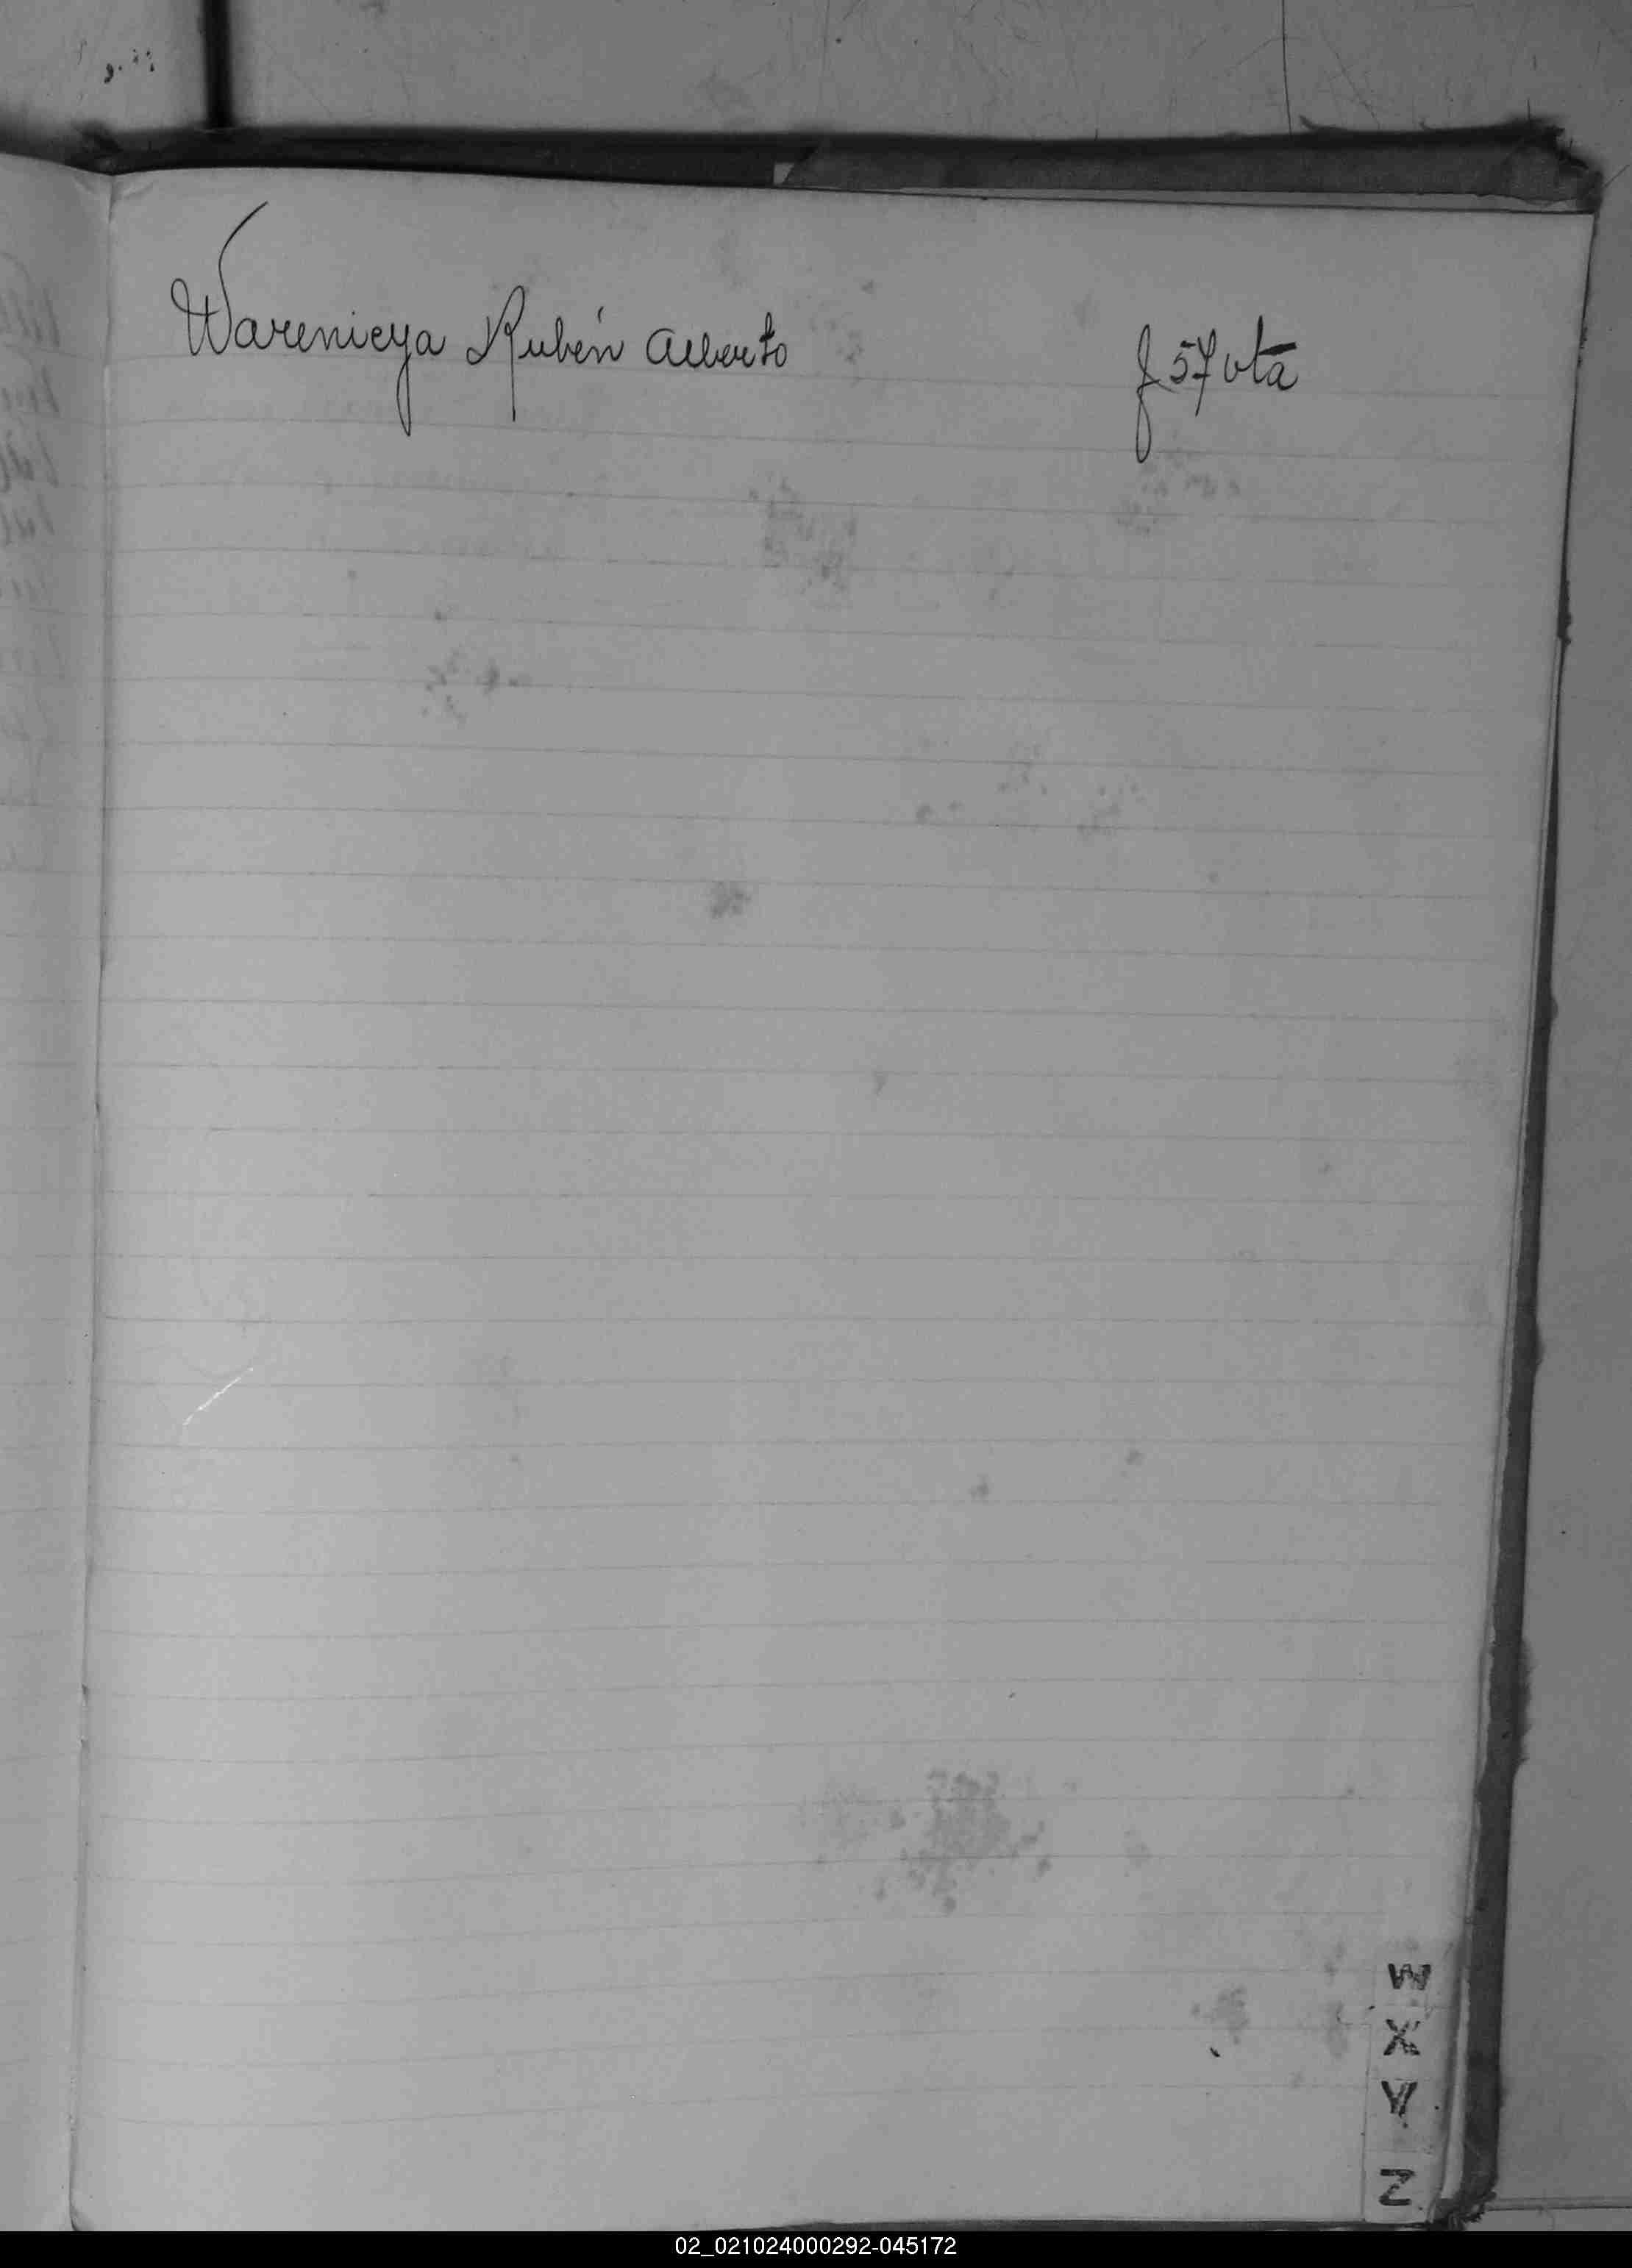 Warenicya Rubén Alberto f 57 vta
W
X
Y
Z
02_021024000292-045172